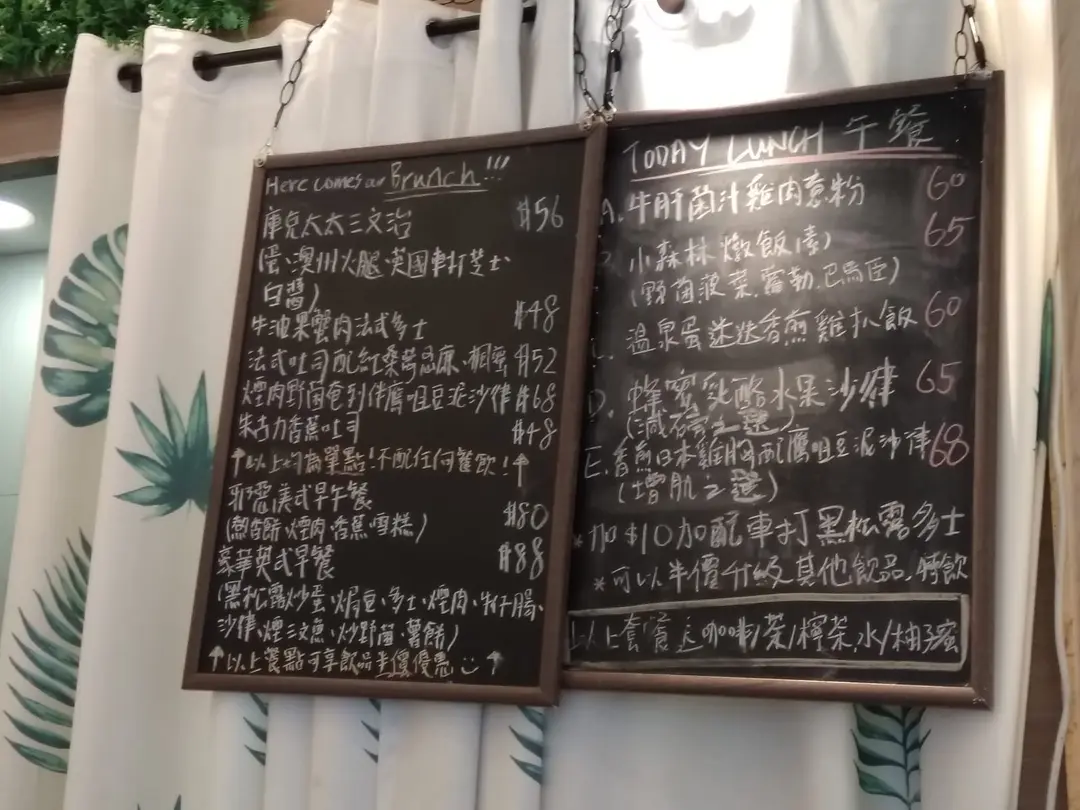 Here comes our Brunch!!!
庫克太太三文治 $56
(蛋、澳州火腿、英國車打芝士、
白醬)
牛油果蟹肉法式多士 $48
法式吐司配紅桑莓忌廉、楓蜜 $52
煙肉野菌奄列伴鷹咀豆泥沙律 $68
朱古力香蕉吐司 $48
↑以上均為單點!不配任何餐飲!↑
邪惡美式早午餐 $80
(熱香餅、煙肉、香蕉、雪糕)
豪華英式早餐 $88
(黑松露炒蛋、焗豆、多士、煙肉、牛仔腸、
沙律、煙三文魚、炒野菌、薯餅)
↑以上餐點可享飲品半價優惠↑
TODAY LUNCH 午餐
A. 牛肝菌汁雞肉意粉 60
小森林燉飯(素) 65
(野菌、菠菜、露勒、巴馬臣)
C. 溫泉蛋迷迭香煎雞扒飯 60
D. 蜂蜜乳酪水果沙律 65
(減磅之選)
E. 香煎日本雞胸配鷹咀豆泥沙律 68
(增肌之選)
*加$10加配車打黑松露多士
*可以半價升級其他飲品,特飲
以上套餐送咖啡/茶/檸茶,水/柚子蜜